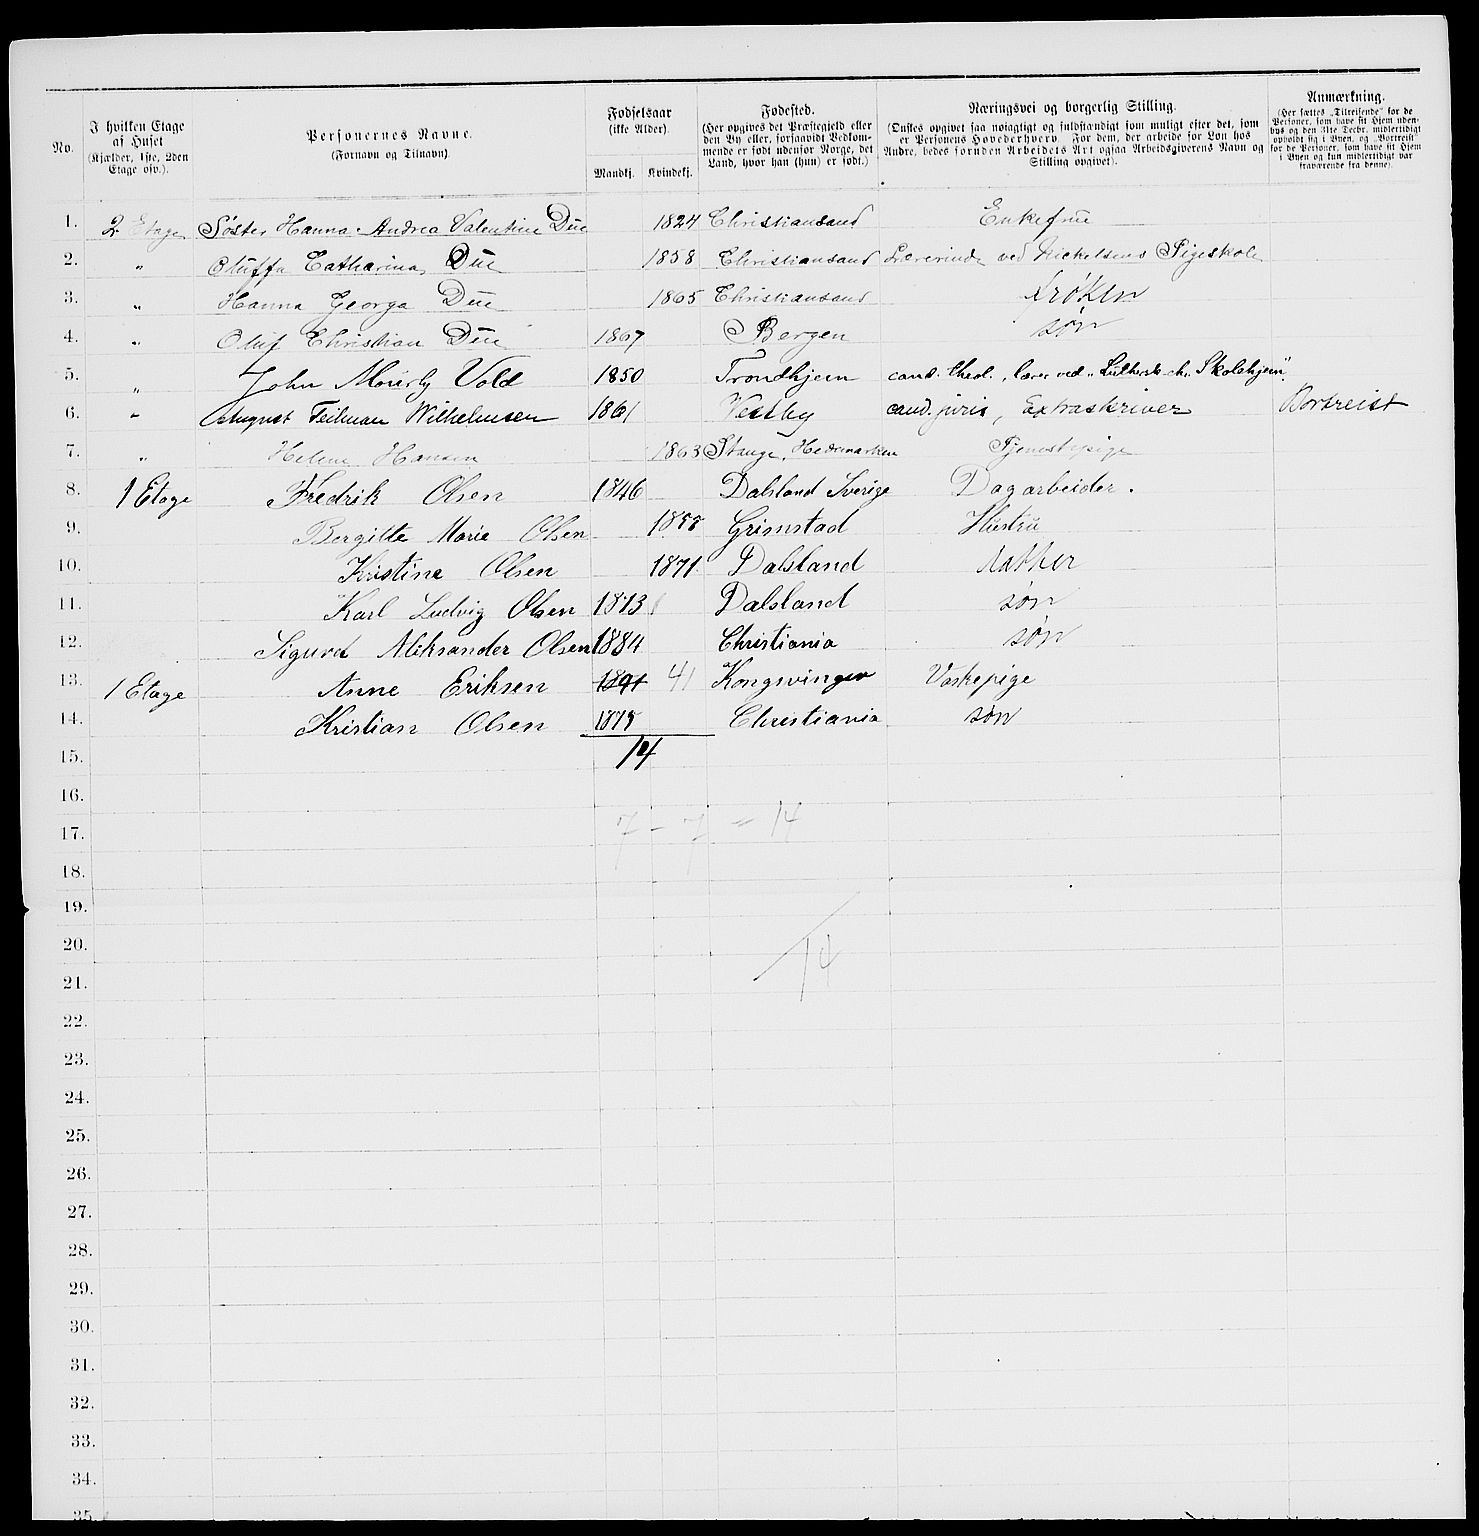 No. | I hvilken Etage af Huset (Kjælder, 1ste, 2den Etage osv.). | Personernes Navne. (Fornavn og Tilnavn). | Fødselsaar (ikke Alder). Mandkj. Kvindekj. | Fødested. (Her opgives det Præstegjeld eller den By eller, forsaavidt Vedkommende er født udenfor Norge, det Land, hvor han (hun) er født.) | Næringsvei og borgerlig Stilling. (Ønskes opgivet saa nøiagtigt og fuldstændigt som muligt efter det, som er Personens Hovederhverv. For dem, der arbeide for Løn hos Andre, bedes foruden Arbeidets Art ogsaa Arbeidsgiverens Navn og Stilling opgivet). | Anmærkning. (Her sættes „Tilreisende“ for de Personer, som have sit Hjem udenbys og den 31te Decbr. midlertidigt opholdt sig i Byen, og „Bortreist“ for de Personer, som have sit Hjem i Byen og kun midlertidigt var fraværende fra denne).
1. 2 Etage Søster Hanna Andrea Valentine Due 1824 Christiansand Enkefrue
2. " Oluffa Catharina Due 1858 Christiansand Lærerinde ved Nickelsens Pigeskole
3. " Hanna Georga Due 1865 Christiansand Frøken
4. " Oluf Christian Due 1867 Bergen søn
5. " John Mourly Vold 1850 Trondhjem cand. theol., lærer ved „Luthersk ch. Skolehjem“.
6. " August Feilman Wilhelmsen 1861 Vestby cand. juris, Extraskriver Bortreist
7. " Helene Hansen 1863 Stange, Hedemarken Tjenestepige
8. 1 Etage Fredrik Olsen 1846 Dalsland Sverige Dagarbeider.
9. Bergitte Marie Olsen 1858 Grimstad Hustru
10. Kristine Olsen 1871 Dalsland datter
11. Karl Ludvig Olsen 1873 Dalsland søn
12. Sigurd Aleksander Olsen 1884 Christiania søn
13. 1 Etage Anne Eriksen 1841 41 Kongsvinger Vaskepige
14. Kristian Olsen 1875 Christiania søn
15. 14
16.
17. 7 - 7 = 14
18.
19.
20. 14
21.
22.
23.
24.
25.
26.
27.
28.
29.
30.
31.
32.
33.
34.
35.